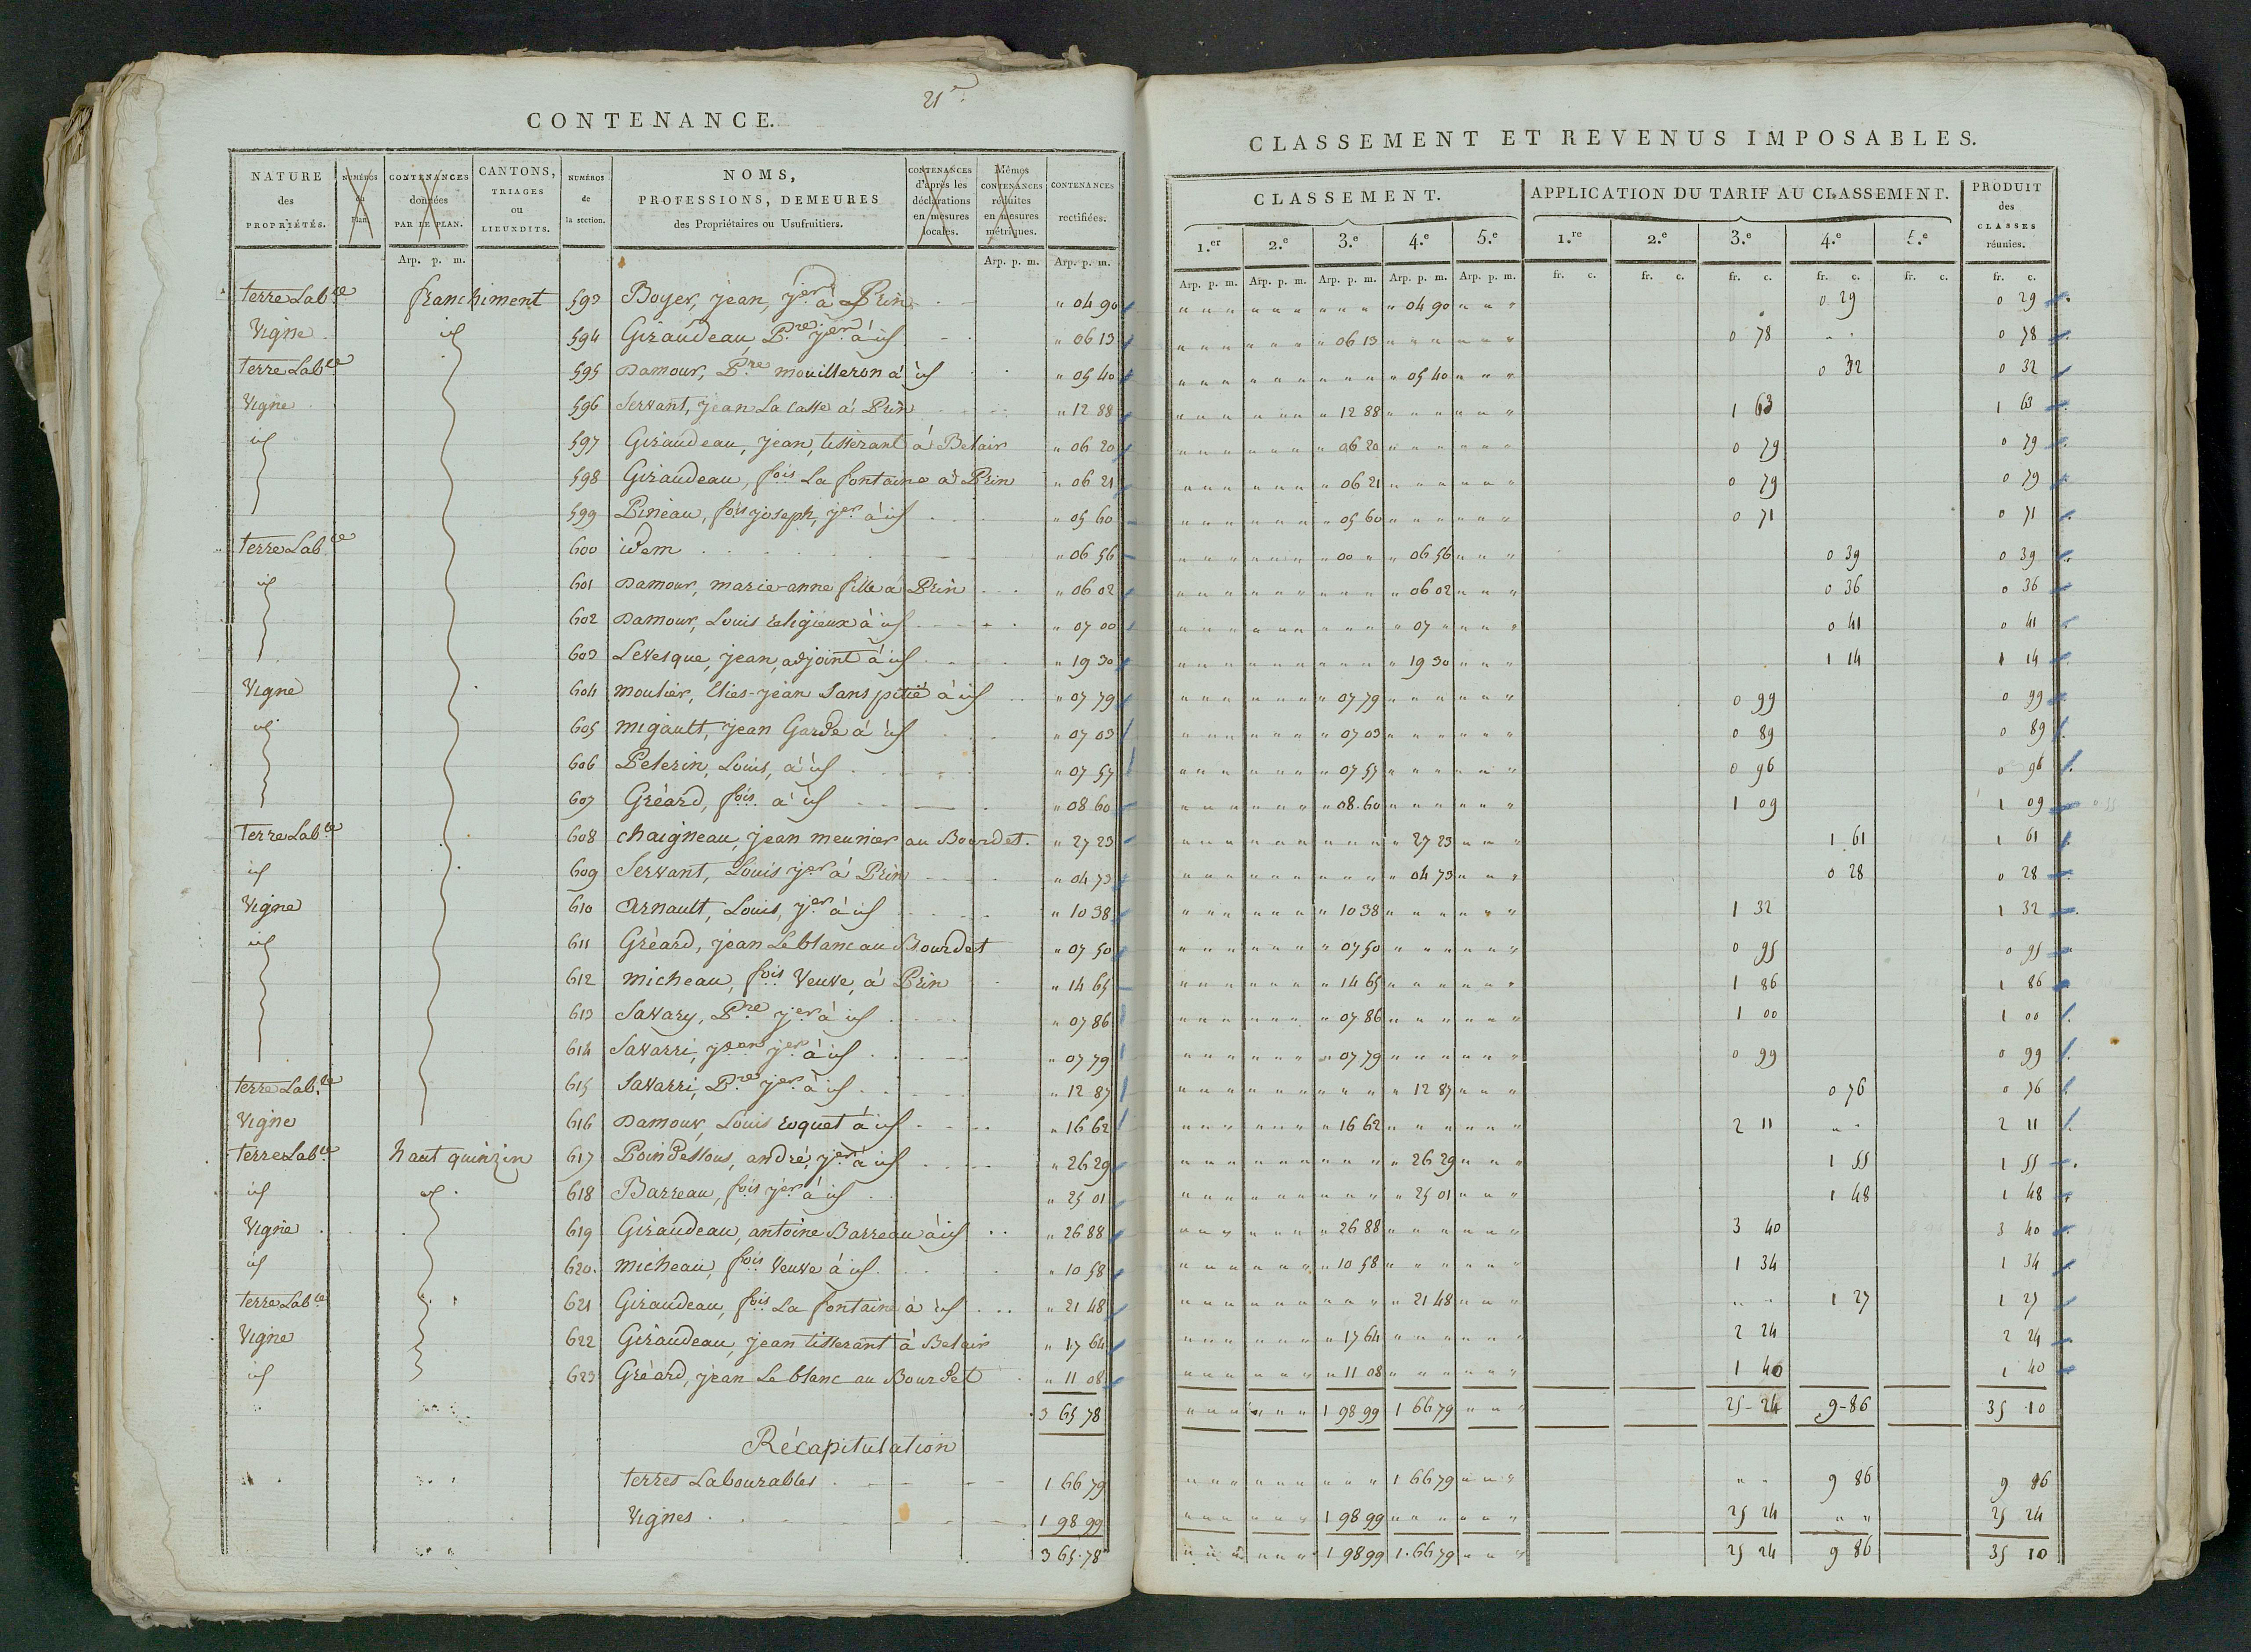 21e.
CONTENANCE.
NATURE des PROPRIÉTÉS. | NUMÉROS du Plan. | CONTENANCES données PAR LE PLAN. | CANTONS, TRIAGES ou LIEUXDITS. | NUMÉROS de la section. | NOMS, PROFESSIONS, DEMEURES des Propriétaires ou Usufruitiers. | CONTENANCES d'après les déclarations en mesures locales. | Mêmes CONTENANCES réduites en mesures métriques. | CONTENANCES rectifiées.
Arp. p. m. | Arp. p. m. | Arp. p. m.
terre Labce franchiment 593 Boyer, jean, jer à Prin " 04 90
Vigne id 594 Giraudeau, Pre jer à id " 06 13
terre Labce 595 Damour, Pre mouilleron à id " 05 40
Vigne 596 Servant, jean La casse à Prin " 12 88
id 597 Giraudeau, jean, tisserant à Belair " 06 20
598 Giraudeau, fois La fontaine à Prin " 06 21
599 Pineau, fois joseph, jer à id " 05 60
terre Labce 600 idem " 06 56
id 601 Damour, marie-anne fille à Prin " 06 02
602 Damour, Louis religieux à id " 07 00
603 Levesque, jean, adjoint à id " 19 30
Vigne 604 moulier, Elies-jean Sans pitié à id " 07 79
id 605 migault, jean Garde à id " 07 03
606 Pelerin, Louis, à id " 07 57
607 Gréard, fois à id " 08 60
Terre Labce 608 chaigneau, jean meunier au Bourdet. " 27 23
id 609 Servant, Louis jer à Prin " 04 73
Vigne 610 Arnault, Louis, jer à id " 10 38
id 611 Gréard, jean Le blanc au Bourdet " 07 50
612 micheau, fois Veuve, à Prin " 14 65
613 Savary, Pre jer à id " 07 86
614 Savarri, jean jer à id " 07 79
terre Labce 615 Savarri, Pre jer à id " 12 87
Vigne 616 Damour, Louis roquet à id " 16 62
terre Labce haut quinzin 617 Poindessous, andré, jer à id " 26 29
id id 618 Barreau, fois jer à id " 25 01
Vigne 619 Giraudeau, antoine Barreau à id " 26 88
id 620. micheau, fois Veuve à id " 10 58
terre Labce 621 Giraudeau, fois La fontaine à id " 21 48
Vigne 622 Giraudeau, jean tisserant à Belair " 17 64
id 623 Gréard, jean Le blanc au Bourdet " 11 08
3 65 78
Récapitulation
terres Labourables 1 66 79
Vignes 1 98 99
3 65 78
CLASSEMENT ET REVENUS IMPOSABLES.
CLASSEMENT. | APPLICATION DU TARIF AU CLASSEMENT. | PRODUIT des CLASSES réunies.
1.er | 2.e | 3.e | 4.e | 5.e | 1.re | 2.e | 3.e | 4.e | 5.e
Arp. p. m. | Arp. p. m. | Arp. p. m. | Arp. p. m. | Arp. p. m. | fr. c. | fr. c. | fr. c. | fr. c. | fr. c. | fr. c.
" 04 90 | 0 29 | 0 29
" 06 13 | 0 78 | 0 78
" 05 40 | 0 32 | 0 32
" 12 88 | 1 63 | 1 63
" 06 20 | 0 79 | 0 79
" 06 21 | 0 79 | 0 79
" 05 60 | 0 71 | 0 71
" 00 " | " 06 56 | 0 39 | 0 39
" 06 02 | 0 36 | 0 36
" 07 " | 0 41 | 0 41
" 19 30 | 1 14 | 1 14
" 07 79 | 0 99 | 0 99
" 07 03 | 0 89 | 0 89
" 07 57 | 0 96 | 0 96
" 08.60 | 1 09 | 1 09
" 27 23 | 1 61 | 1 61
" 04 73 | 0 28 | 0 28
" 10 38 | 1 32 | 1 32
" 07 50 | 0 95 | 0 95
" 14 65 | 1 86 | 1 86
" 07 86 | 1 00 | 1 00
" 07 79 | 0 99 | 0 99
" 12 87 | 0 76 | 0 76
" 16 62 | 2 11 | 2 11
" 26 29 | 1 55 | 1 55
" 25 01 | 1 48 | 1 48
" 26 88 | 3 40 | 3 40
" 10 58 | 1 34 | 1 34
" 21 48 | 1 27 | 1 27
" 17 64 | 2 24 | 2 24
" 11 08 | 1 40 | 1 40
1 98 99 | 1 66 79 | 25-24 | 9-86 | 35 10
1 66 79 | 9 86 | 9 86
1 98 99 | 25 24 | " " | 25 24
1 98 99 | 1.66 79 | 25 24 | 9 86 | 35 10